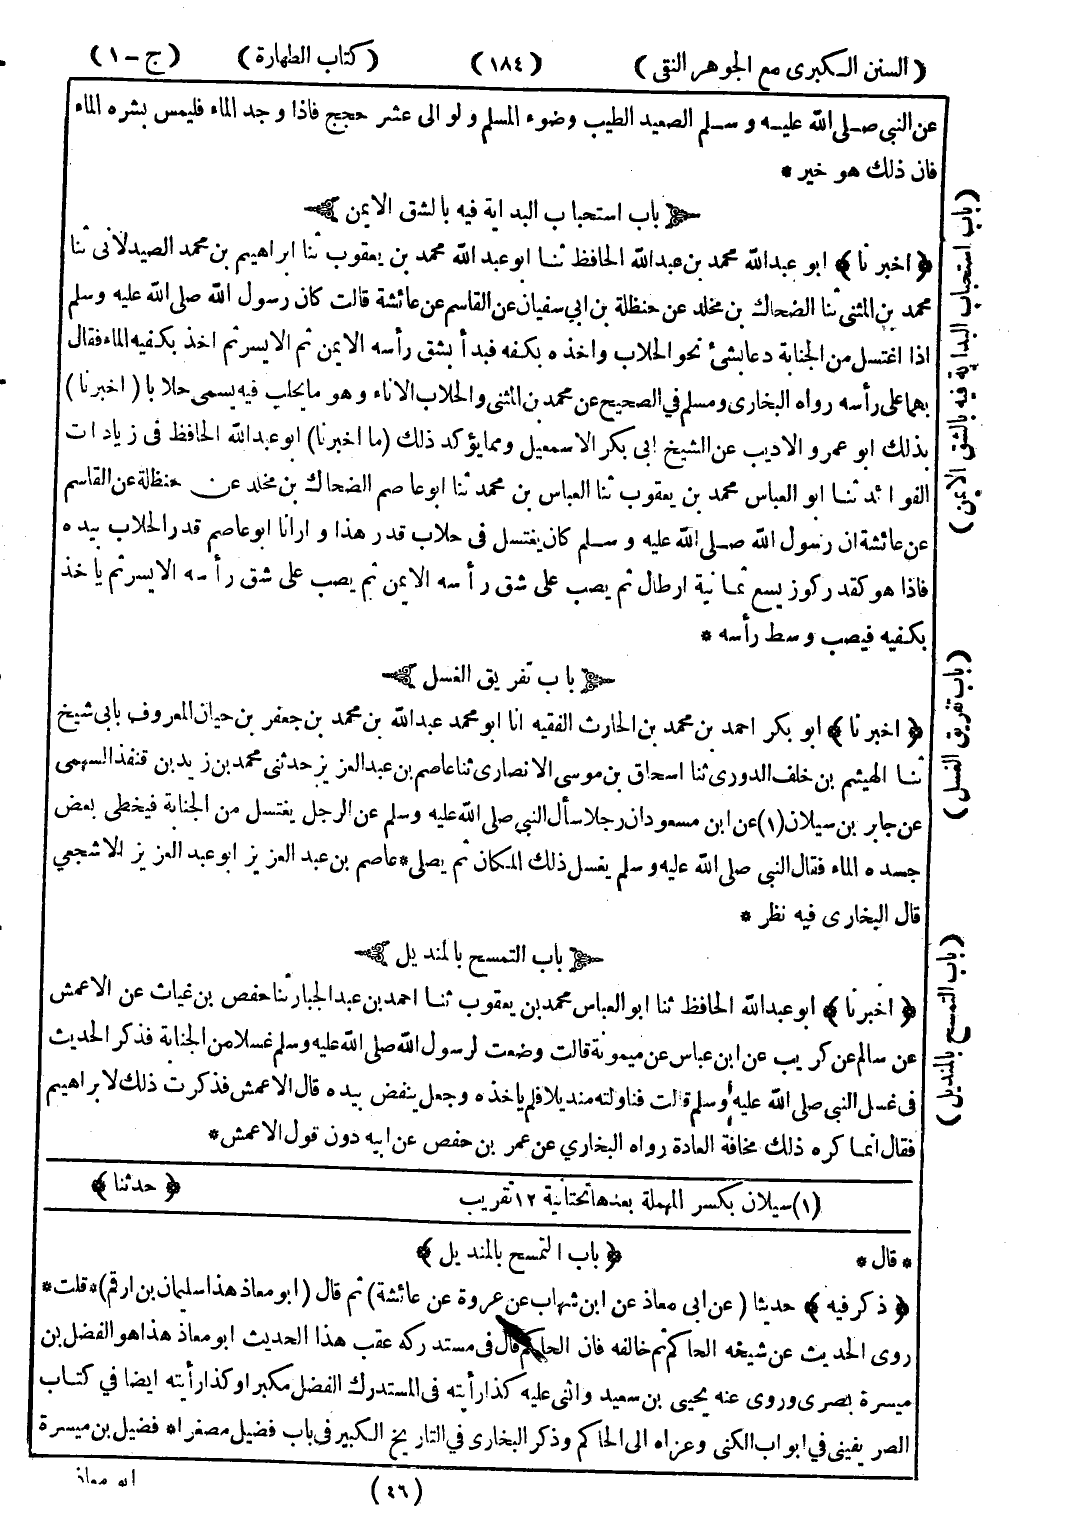 ( السنن الكبرى مع الجوهر النقى ) ( ١٨٤ ) ( كتاب الطهارة ) ( ج - ١ )
عن النبى صلى الله عليه وسلم الصعيد الطيب وضوء المسلم ولو الى عشر حجج فاذا وجد الماء فليمس بشره الماء
فان ذلك هو خير *
باب استحباب البداية فيه بالشق الايمن
﴿ اخبرنا ﴾ ابو عبدالله محمد بن عبدالله الحافظ ثنا ابو عبد الله محمد بن يعقوب ثنا ابراهيم بن محمد الصيدلانى ثنا
محمد بن المثنى ثنا الضحاك بن مخلد عن حنظلة بن ابي سفيان عن القاسم عن عائشة قالت كان رسول الله صلى الله عليه وسلم
اذا اغتسل من الجنابة دعا بشئ نحو الحلاب واخذه بكفه فبدأ بشق رأسه الايمن ثم الايسر ثم اخذ بكفيه الماء فقال
بهما على رأسه رواه البخارى ومسلم في الصحيح عن محمد بن المثنى والحلاب الاناء وهو ما يحلب فيه يسمى حلابا ( اخبرنا )
بذلك ابو عمرو الاديب عن الشيخ ابى بكر الاسمعيل ومما يؤكد ذلك (ما اخبرنا) ابو عبدالله الحافظ فى زيادات
الفوائد ثنا ابو العباس محمد بن يعقوب ثنا العباس بن محمد ثنا ابو عاصم الضحاك بن مخلد عن حنظلة عن القاسم
عن عائشة ان رسول الله صلى الله عليه وسلم كان يغتسل فى حلاب قدر هذا وارانا ابو عاصم قدر الحلاب بيده
فاذا هو كقدر كوز يسع ثمانية ارطال ثم يصب على شق رأسه الايمن ثم يصب على شق رأسه الايسر ثم ياخذ
بكفيه فيصب وسط رأسه *
باب تفريق الغسل
﴿ اخبرنا ﴾ ابو بكر احمد بن محمد بن الحارث الفقيه انا ابو محمد عبدالله بن محمد بن جعفر بن حيان المعروف بابى شيخ
ثنا الهيثم بن خلف الدورى ثنا اسحاق بن موسى الانصارى ثنا عاصم بن عبد العزيز حدثنى محمد بن زيد بن قنفذ السهمى
عن جابر بن سيلان (١) عن ابن مسعود ان رجلا سأل النبي صلى الله عليه وسلم عن الرجل يغتسل من الجنابة فيخطى بعض
جسده الماء فقال النبى صلى الله عليه وسلم يغسل ذلك المكان ثم يصلى * عاصم بن عبد العزيز ابو عبد العزيز الاشجعي
قال البخارى فيه نظر *
باب التمسح بالمنديل
﴿ اخبرنا ﴾ ابو عبدالله الحافظ ثنا ابو العباس محمد بن يعقوب ثنا احمد بن عبد الجبار ثنا حفص بن غياث عن الاعمش
عن سالم عن كريب عن ابن عباس عن ميمونة قالت وضعت لرسول الله صلى الله عليه وسلم غسلا من الجنابة فذكر الحديث
فى غسل النبى صلى الله عليه وسلم قالت فناولته منديلا فلم ياخذه وجعل ينفض بيده قال الاعمش فذكرت ذلك لابراهيم
فقال انما كره ذلك مخافة العادة رواه البخاري عن عمر بن حفص عن ابيه دون قول الاعمش *
﴿ حدثنا ﴾
(١) سيلان بكسر المهملة بعدها تحتانية ١٢ تقريب
* قال * ﴿ باب التمسح بالمنديل ﴾
﴿ ذكر فيه ﴾ حديثا ( عن ابى معاذ عن ابن شهاب عن عروة عن عائشة) ثم قال ( ابو معاذ هذا سليمان بن ارقم) * قلت *
روى الحديث عن شيخه الحاكم ثم خالفه فان الحاكم قال فى مستدركه عقب هذا الحديث ابو معاذ هذا هو الفضل بن
ميسرة بصرى وروى عنه يحيى بن سعيد واثنى عليه كذا رأيته فى المستدرك الفضل مكبرا وكذا رأيته ايضا في كتاب
الصريفينى في ابواب الكنى وعزاه الى الحاكم وذكر البخارى في التاريخ الكبير فى باب فضيل مصغرا * فضيل بن ميسرة
( ٤٦ ) ابو معاذ
(باب استحباب البداية فيه بالشق الايمن)
(باب تفريق الغسل)
(باب التمسح بالمنديل)